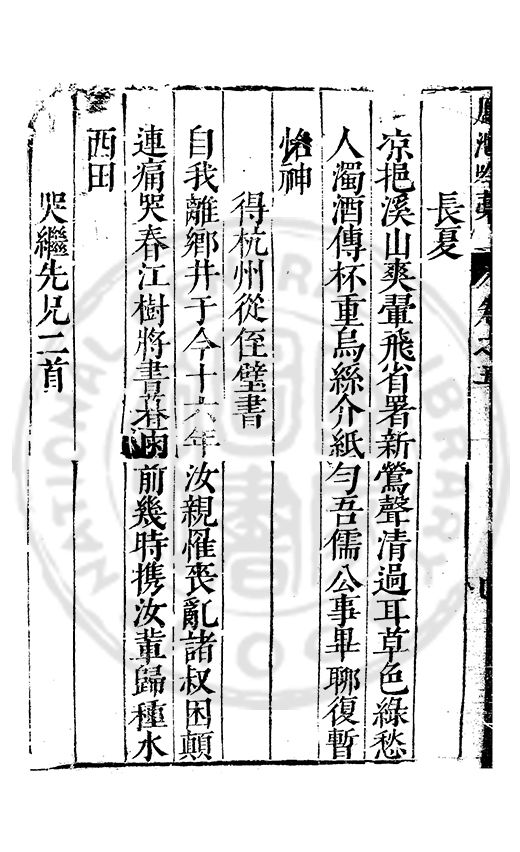 長夏
凉挹溪山爽翬飛省署新鶯聲清過耳草色綠愁
人濁酒傳杯重烏絲介紙勻吾儒公事畢聊復暫
怡神
得杭州從侄璧書
自我離鄉井于今十六年汝親罹喪亂諸叔困顛
連痛哭春江樹將書暮雨前幾時携汝輩歸種水
西田
哭繼先兄二首